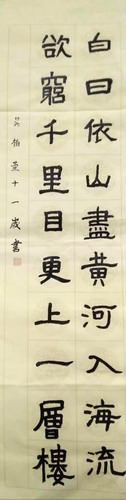 白日依山盡黃河入海流
欲窮千里目更上一層樓
柏亞十一歲書